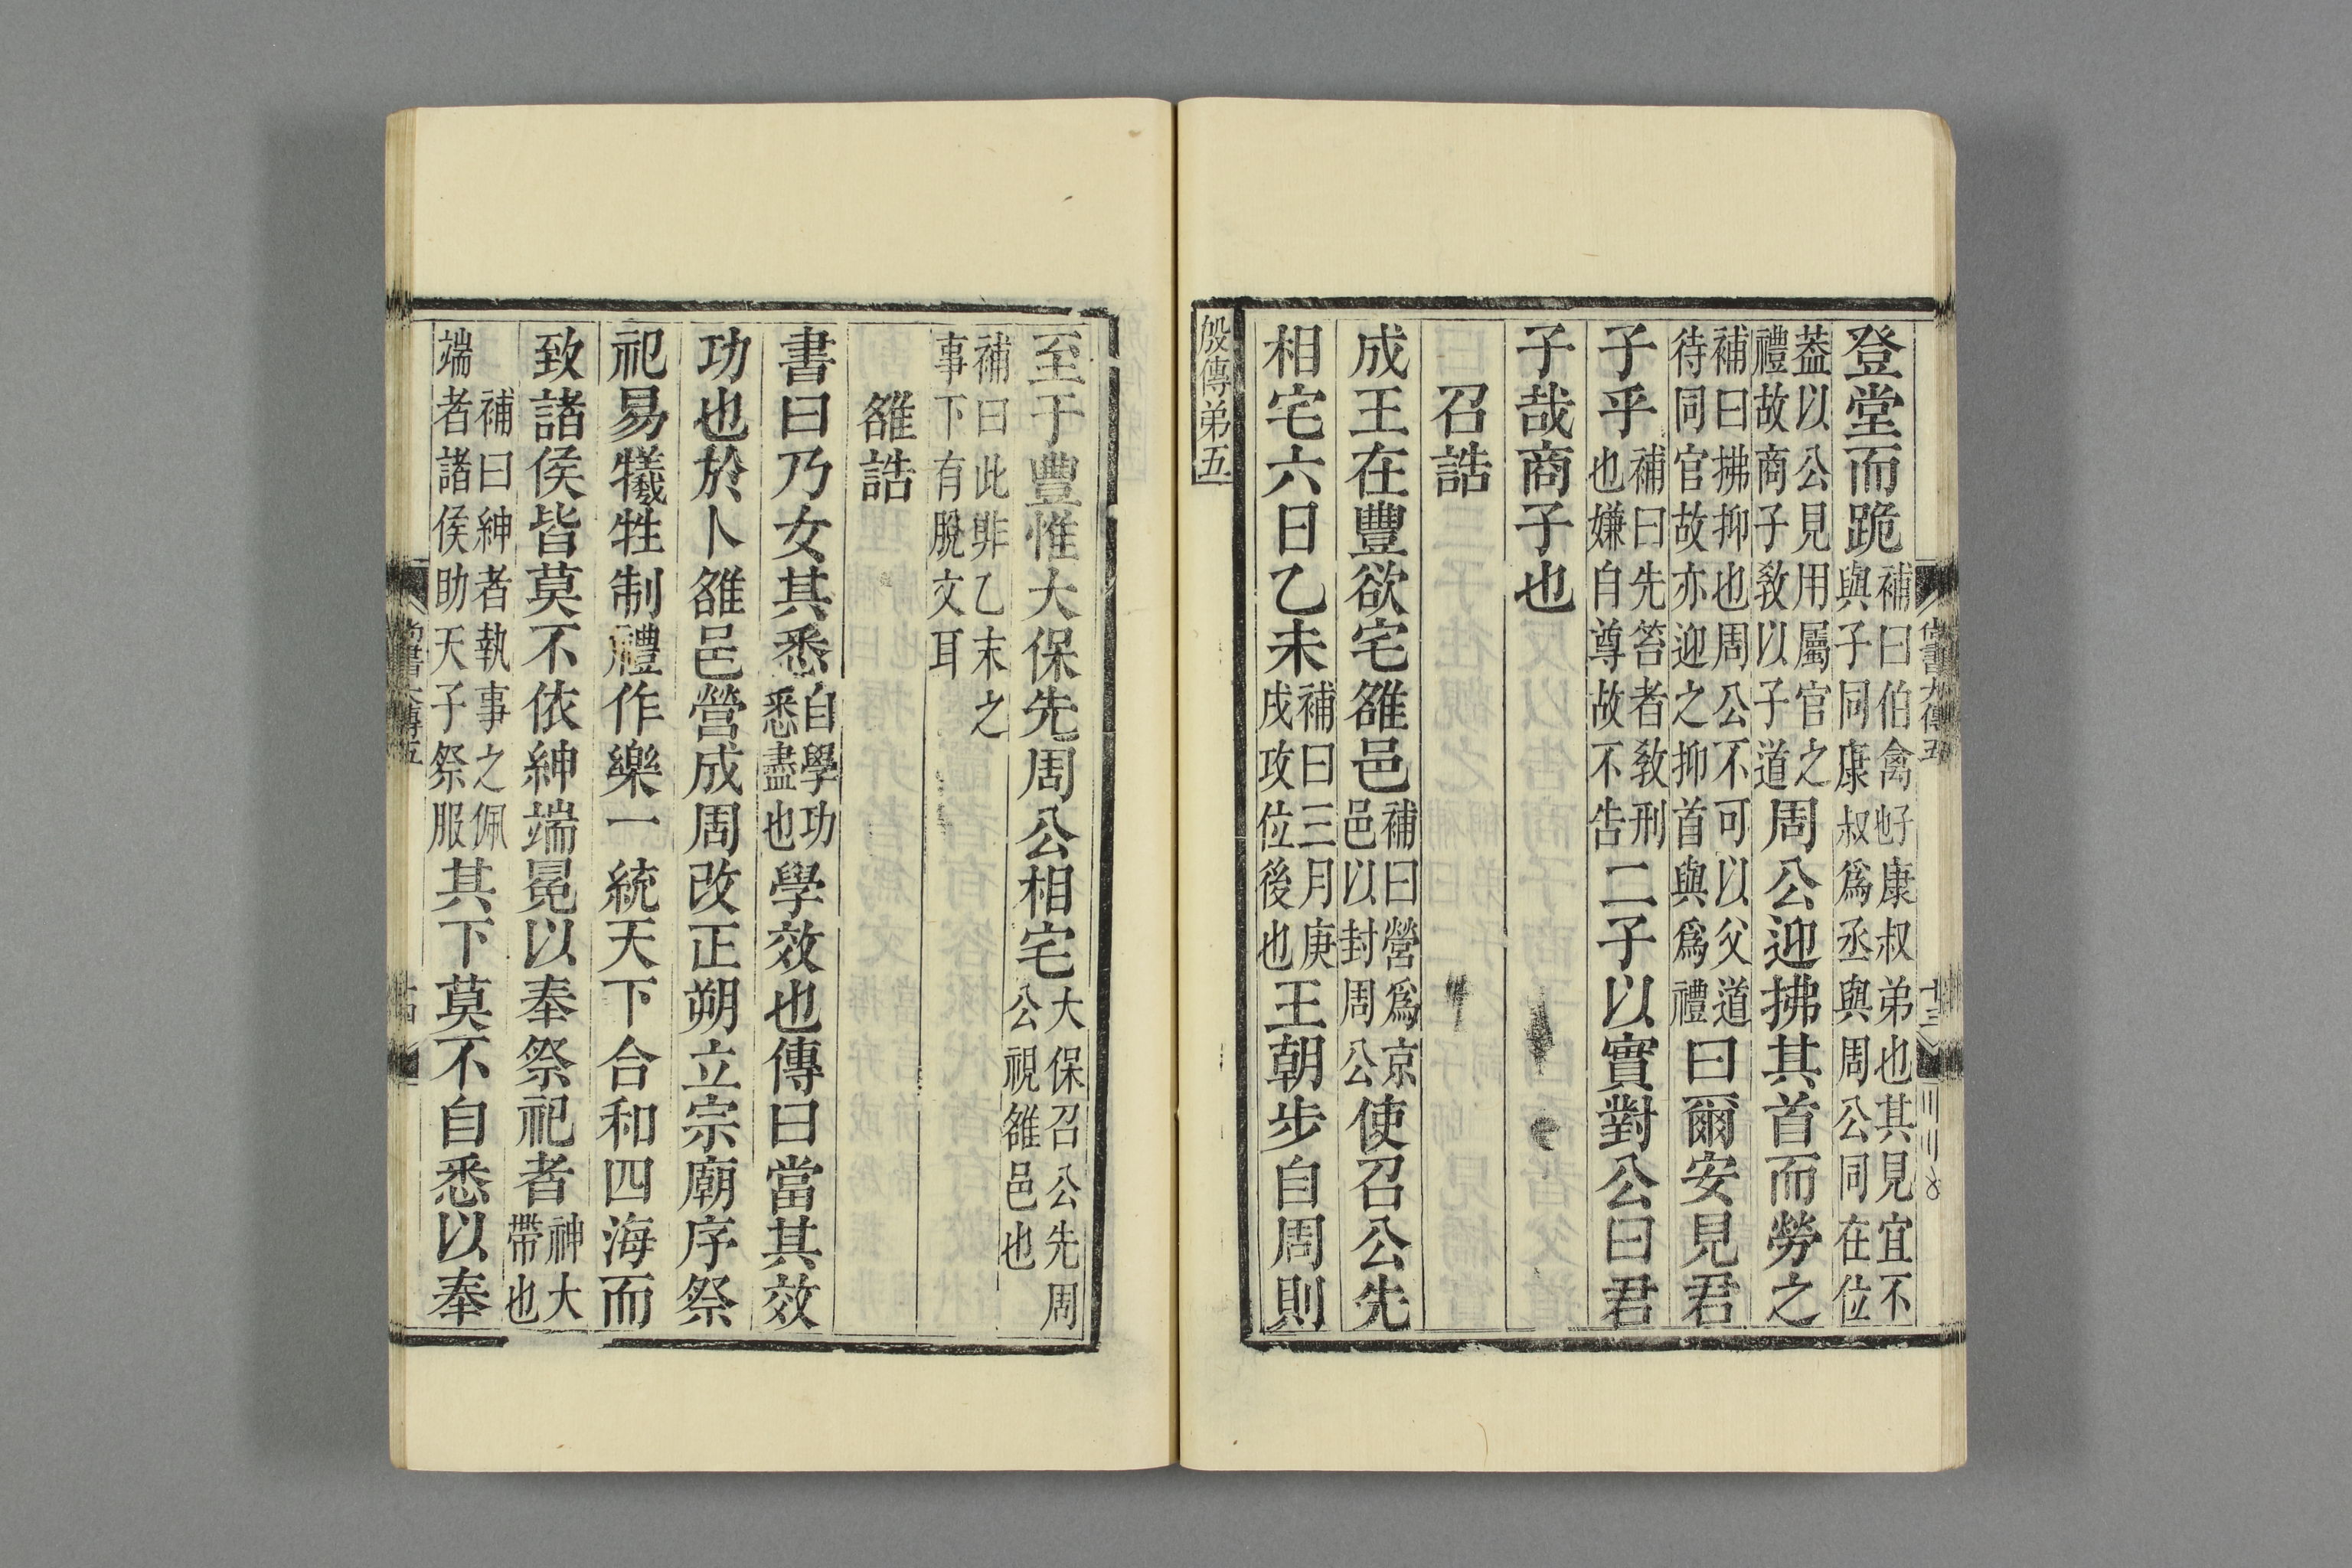 登堂而跪補曰伯禽也子康叔弟也其見宜不
與子同康叔爲丞與周公同在位
蓋以公見用屬官之
禮故商子敎以子道周公迎拂其首而勞之
補曰拂抑也周公不可以父道
待同官故亦迎之抑首與爲禮曰爾安見君
子乎補曰先笞者敎刑
也嫌自尊故不告二子以實對公曰君
子哉商子也
召誥
成王在豐欲宅雒邑補曰營爲京
邑以封周公使召公先
相宅六日乙未補曰三月庚
戌攻位後也王朝步自周則
殷傳弟五
至于豐惟大保先周公相宅大保召公先周
公視雒邑也
補曰此非乙末之
事下有脫文耳
雒誥
書曰乃女其悉自學功
悉盡也學效也傳曰當其效
功也於卜雒邑營成周改正朔立宗廟序祭
祀易犧牲制禮作樂一統天下合和四海而
致諸侯皆莫不依紳端冕以奉祭祀者神大
帶也
補曰紳者執事之佩
端者諸侯助天子祭服其下莫不自悉以奉